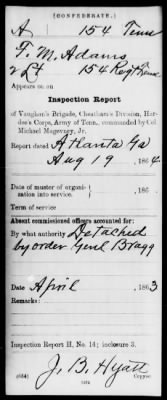 (CONFEDERATE.)
A 154 Tenn
F. M. Adams
2 Lt 154 Regt Tenn
Appears on
Inspection Report
of Vaughan's Brigade, Cheatham's Division, Har-
dee's Corps, Army of Tenn., commanded by Col
Michael Magevney, Jr.
Report dated Atlanta Ga
Aug 19, 1864
Date of muster or organi-
zation into service
Term of service
Absent commissioned officers accounted for:
By what authority Detached
by order Genl Bragg
Date April, 1863
Remarks:
Inspection Report H, No. 14; inclosure 3.
J. B. Hyatt
(654) Copyist.